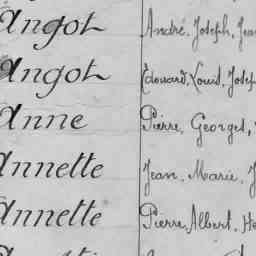 Angot André, Joseph, Jean
Angot Edouard, Louis, Josep
Anne Pierre, Georges,
Annette Jean, Marie, J
Annette Pierre, Albert, He